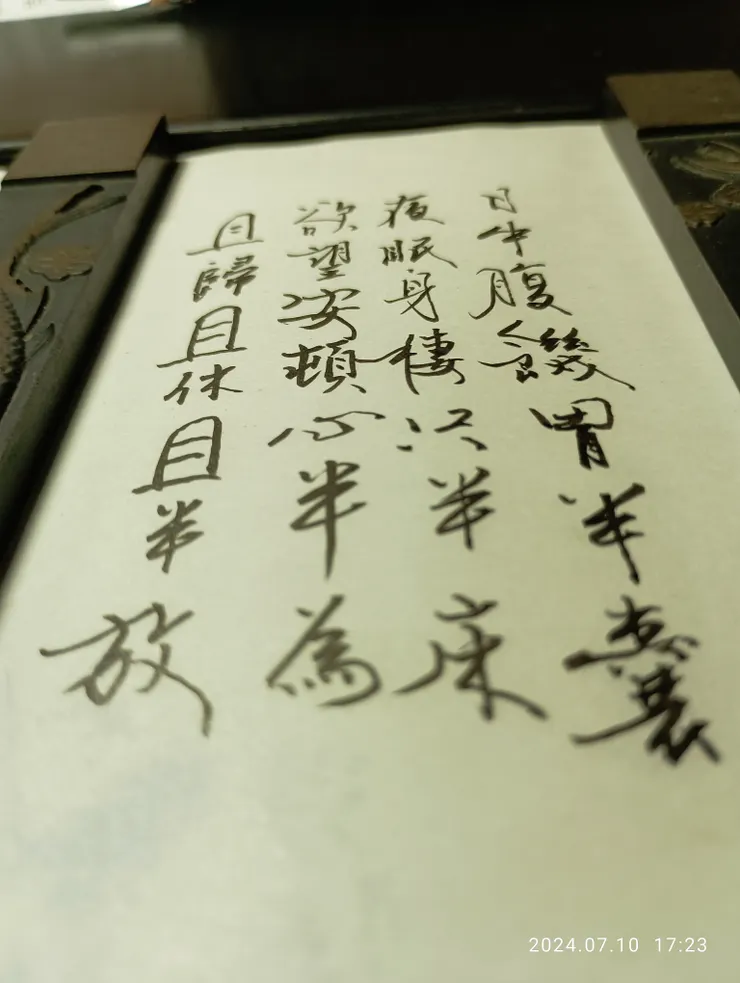 日中腹饑胃半囊
夜眠身棲只半床
欲望安頓心半為
且歸且休且半放
2024.07.10 17:23